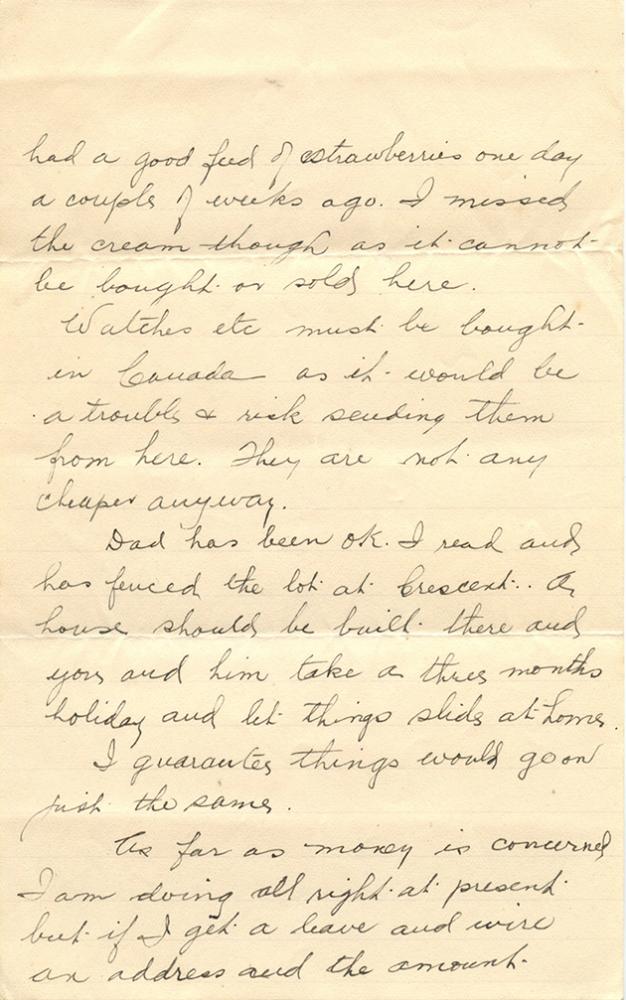 had a good feed of strawberries one day
a couple of weeks ago. I missed
the cream though as it cannot
be bought or sold here.
Watches etc must be bought
in Canada as it would be
a trouble & risk sending them
from here. They are not any
cheaper anyway.
Dad has been OK. I read and
has fenced the lot at Crescent. A
house should be built there and
you and him take a three months
holiday and let things slide at home.
I guarantee things would go on
just the same.
As far as money is concerned
I am doing all right at present
but if I get a leave and wire
an address and the amount